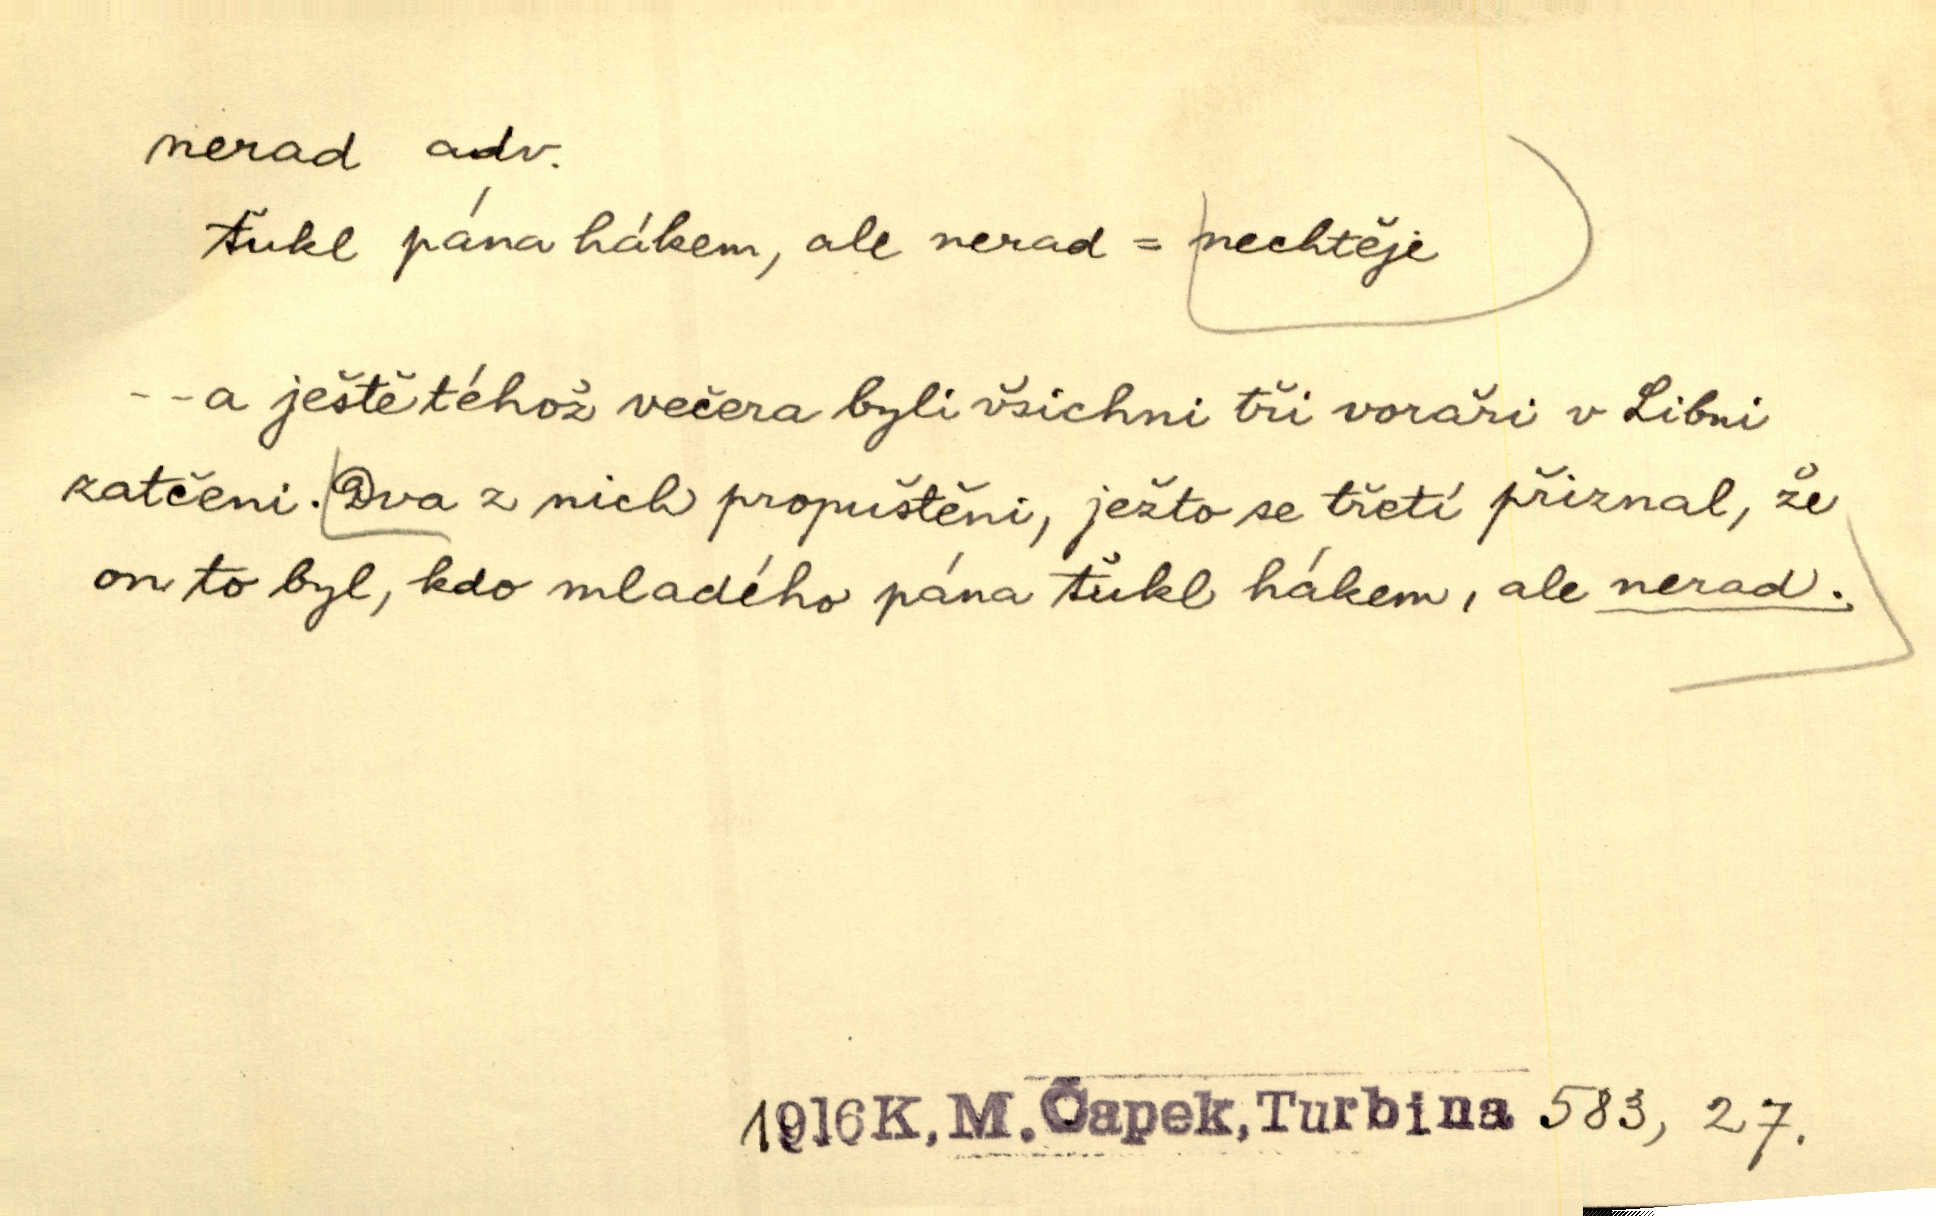 nerad adv.
ťukl pána hákem, ale nerad = nechtěje
--a ještě téhož večera byli všichni tři voraři v Libni
zatčeni. Dva z nich propuštěni, ježto se třetí přiznal, že
on to byl, kdo mladého pána ťukl hákem, ale nerad.
1916 K. M. Čapek, Turbina 583, 27.